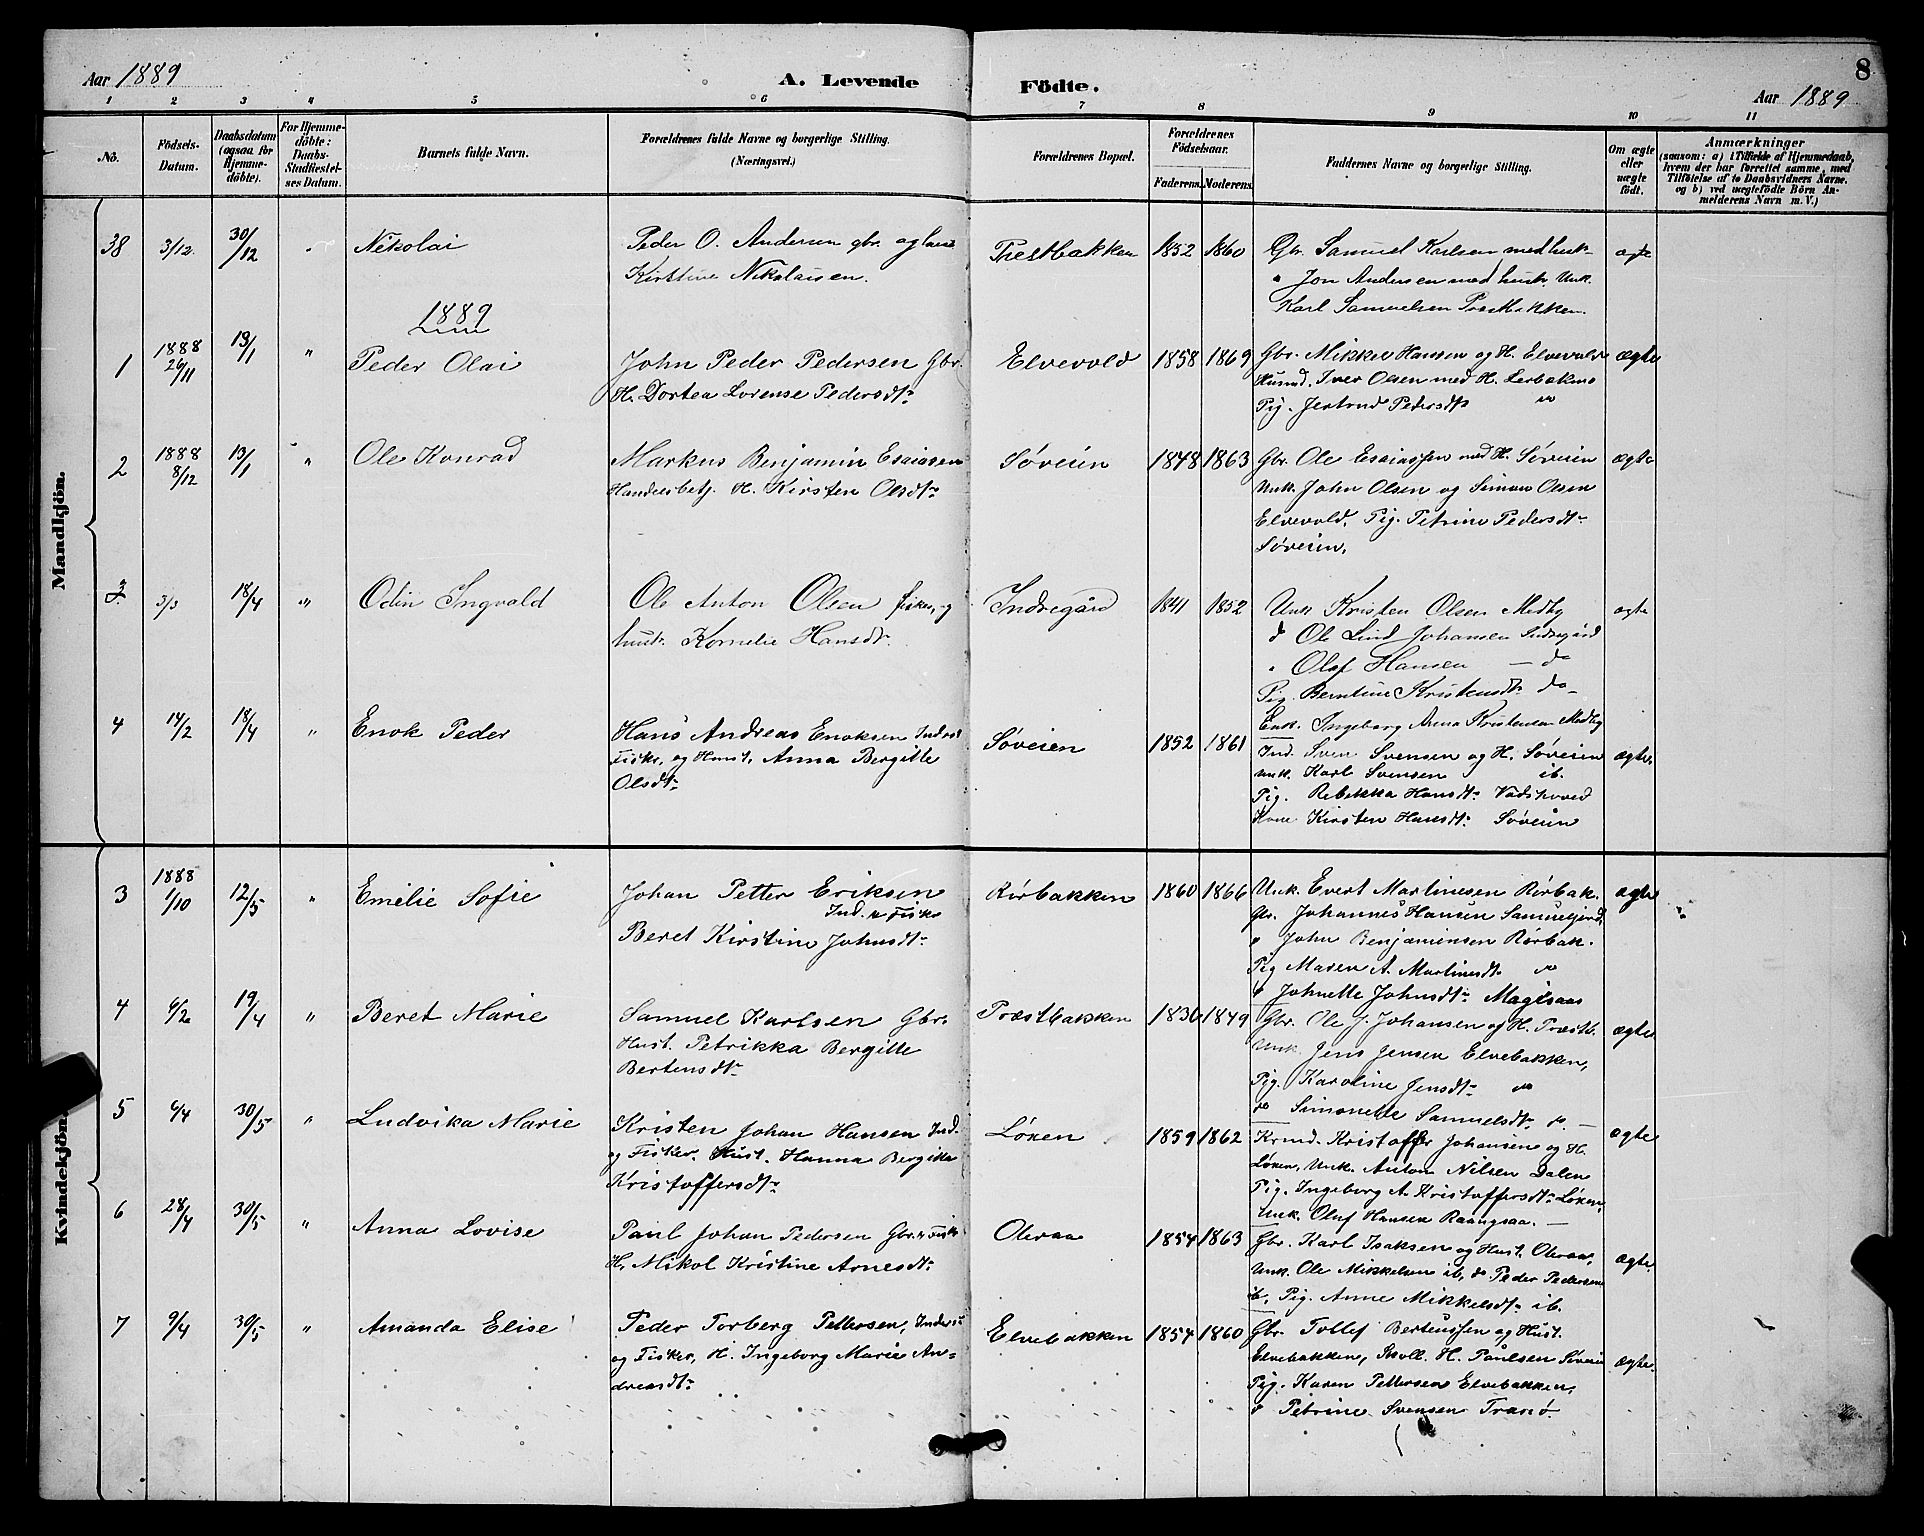 8
Aar 1889 A. Levende Födte. Aar 1889
1 2 3 4 5 6 7 8 9 10 11
No. Födsels-Datum. Daabsdatum (ogsaa for Hjemmedöbte). For Hjemmedöbte: Daabs-Stadfæstelses Datum. Barnets fulde Navn. Forældrenes fulde Navne og borgerlige Stilling. (Næringsvei.) Forældrenes Bopæl. Forældrenes Födselsaar. Faderens. Moderens. Faddernes Navne og borgerlige Stilling. Om ægte eller uægte födt. Anmærkninger (saasom: a) i Tilfælde af Hjemmedaab, hvem der har forrettet samme, med Tilföielse af to Daabsvidners Navne, og b) ved uægtefödte Börn Anmelderens Navn m. V.)
Mandkjön.
38 3/12 30/12 " Nikolai Peder O. Andersen gbr. og Prestbakken 1852 1860 Gbr. Samuel Karlsen med hust. ægte
Kirstine Nikolaisen. " Jon Andersen med hustr. Unk.
Karl Samuelsen Prestbakken.
1889
1 1888 26/11 13/1 " Peder Olai John Peder Pedersen Gbr. Elvevold 1858 1869 Gbr. Mikkel Hansen og H. Elvevold ægte
H. Dortea Lorense Pedersdtr. Husmd. Iver Olsen med H. Lerbakmo
Pig. Jertrud Pedersdtr "
2 1888 8/12 13/1 " Ole Konrad Markus Benjamin Esaiasen Søveien 1848 1863 Gbr. Ole Esaiassen med H. Søveien ægte
Handelsbetj. H. Kirsten Olsdtr. Unk. John Olsen og Simon Olsen
Elvevold, Pig. Petrine Pedersdtr.
Søveien.
3 3/3 18/4 " Odin Ingvald Ole Anton Olsen fisker, og Indregård 1841 1852 Unk Kristen Olsen Medby ægte
hustr. Kornelie Hansdtr. do Ole Lind Johansen Indregård
" Olaf Hansen — do
Pig. Berntine Kristensdtr do
Enk. Ingeborg Anna Kristensen Medby
4 14/2 18/4 " Enok Peder Hans Andreas Enoksen Inderst Søveien 1852 1861 Ind. Sven Svensen og H. Søveien ægte.
Fisker, og Hust. Anna Bergitte Unk. Karl Svensen ib.
Olsdtr. Pig. Rebekka Hansdtr. Vadshoved
Kone Kirsten Hansdtr. Søveien
Kvindekjön.
3 1888 1/10 12/5 " Emelie Sofie Johan Petter Eriksen Rørbakken 1860 1866 Unk. Evert Martinesen Rørbak. ægte
Ind. & Fisk Gbr. Johannes Hansen
Beret Kirstine Johnsdtr. " John Benjaminsen Rørbak.
Pig Maren A. Martinesdtr "
" Johnette Johnsdtr.
4 6/2 19/4 " Beret Marie Samuel Karlsen Gbr. Præstbakken 1830 1849 Gbr. Ole J. Johansen og H. Præstb. ægte
Hust. Petrikka Bergitte Unk. Jens Jensen Elvebakken,
Bertensdtr. Pig. Karoline Jensdtr. "
do Simonette Samuelsdtr. do. —
5 6/4 30/5 " Ludvika Marie Kristen Johan Hansen Ind. Løken 1859 1862 Krmd. Kristoffer Johansen og H. ægte
og Fisker. Hust. Hanna Bergitte Løken, Unk. Anton Nilsen Dalen
Kristoffersdtr. Pig. Ingeborg A. Kristoffersdtr. Løken,
Unk. Oluf Hansen
6 28/4 30/5 " Anna Lovise Paul Johan Pedersen Gbr. & Fisk. Oleraa 1854 1863 Gbr. Karl Isaksen og Hust. Oleraa, ægte.
H. Mikol Kristine Arnesdtr. Unk. Ole Mikkelsen ib, do Peder Pedersen
ib, Pig. Anne Mikkelsdtr. ib.
7 9/4 30/5 " Amanda Elise Peder Torberg Pettersen, Inderst Elvebakken 1854 1860 Gbr. Tollef Berteussen og Hust. ægte.
og Fisker, H. Ingeborg Marie An= Elvebakken, H. Paulsen Søveien
dreasdtr. Pig. Karen Pettersen Elvebakken,
" Petrine Svensen Tranø.